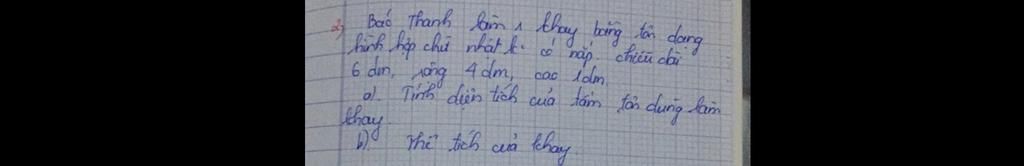 2) Bác Thanh làm 1 khay bằng tôn dạng
hình hộp chữ nhật k. có nắp. chiều dài
6 dm, rộng 4 dm, cao 1dm.
a). Tính diện tích của tấm tôn dùng làm
khay.
b) Thể tích của khay.